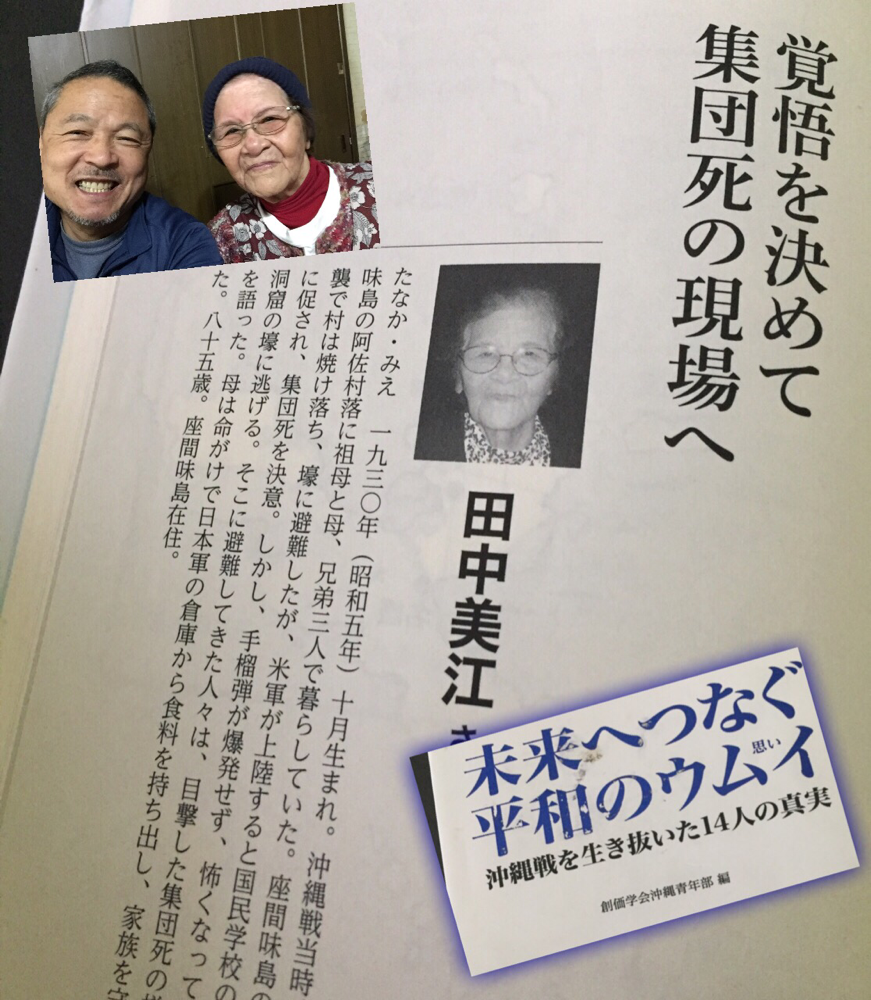 覚悟を決めて
集団死の現場へ
田中美江
たなか・みえ　一九三〇年（昭和五年）十月生まれ。沖縄戦当時
味島の阿佐村落に祖母と母、兄弟三人で暮らしていた。座間味島の
襲で村は焼け落ち、壕に避難したが、米軍が上陸すると国民学校の
に促され、集団死を決意。しかし、手榴弾が爆発せず、怖くなって
洞窟の壕に逃げる。そこに避難してきた人々は、目撃した集団死の
を語った。母は命がけで日本軍の倉庫から食料を持ち出し、家族を
た。八十五歳。座間味島在住。
未来へつなぐ
平和のウムイ
思い
沖縄戦を生き抜いた14人の真実
創価学会沖縄青年部 編